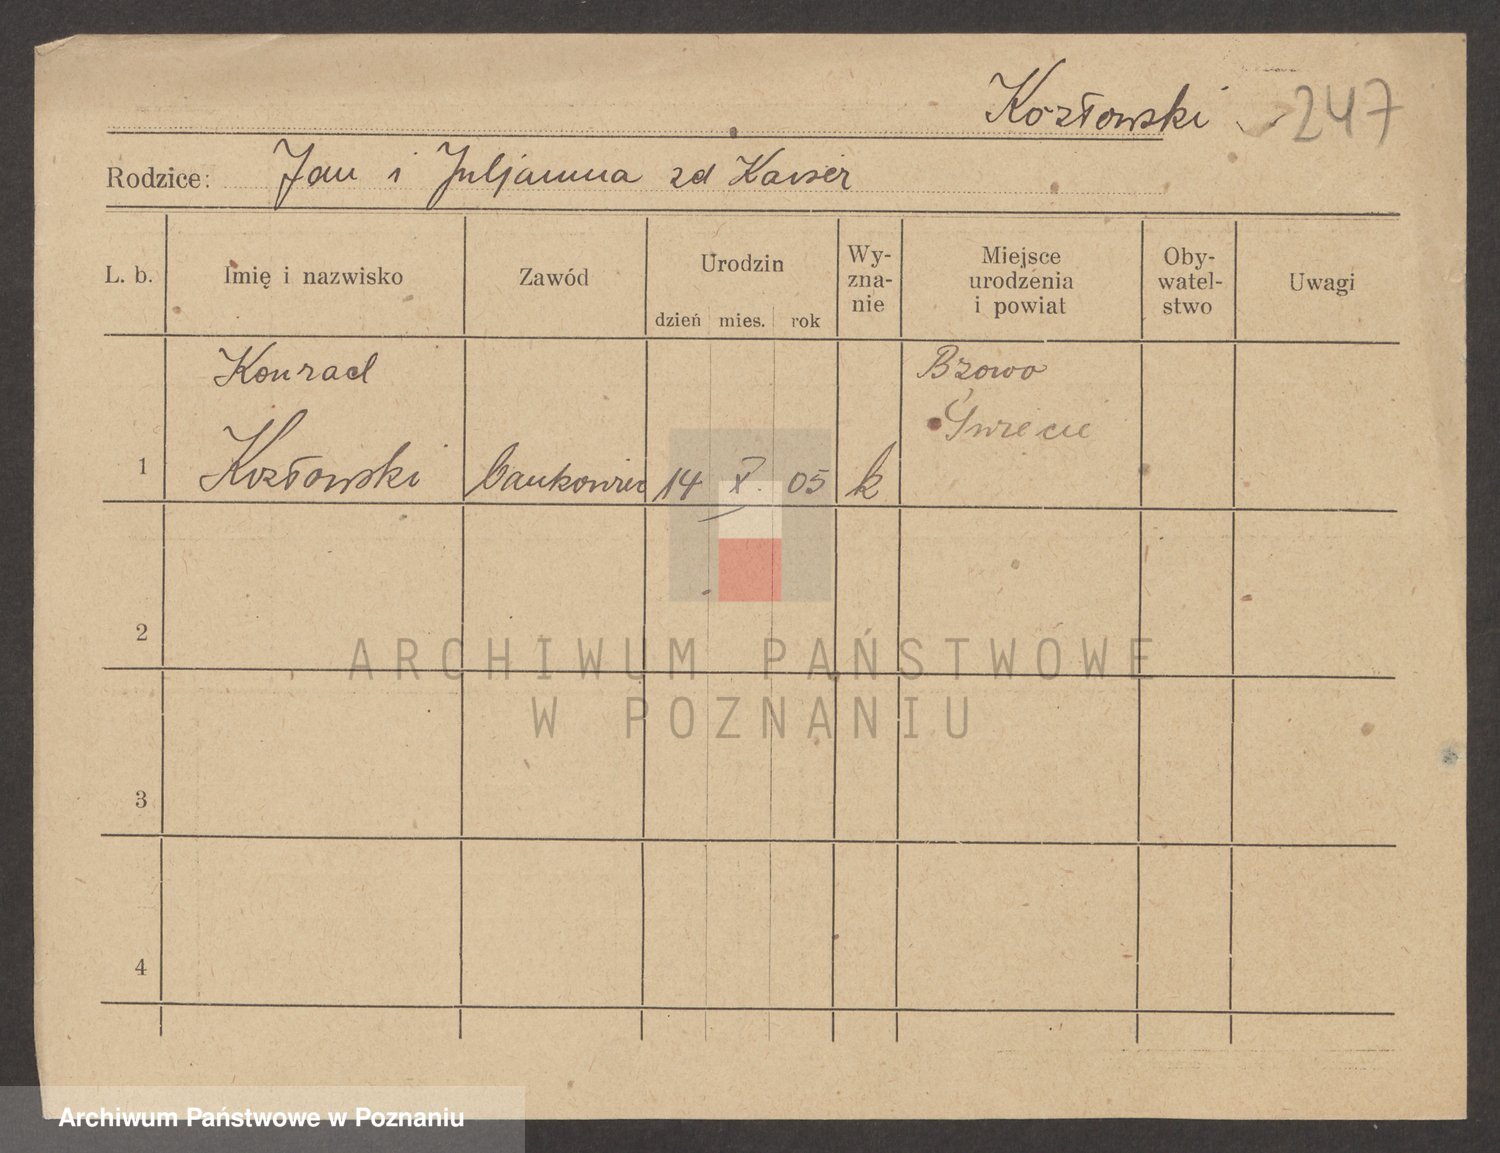 Kozłowski 247
Rodzice: Jan i Juljanna zd Kaiser
L. b. Imię i nazwisko Zawód Urodzin Wy-zna-nie Miejsce urodzenia i powiat Oby-watel-stwo Uwagi
dzień mies. rok
Konrad Bzowo
Świecie
1 Kozłowski bankowiec 14 X. 05 k
2
3
4
ARCHIWUM PAŃSTWOWE
W POZNANIU
Archiwum Państwowe w Poznaniu